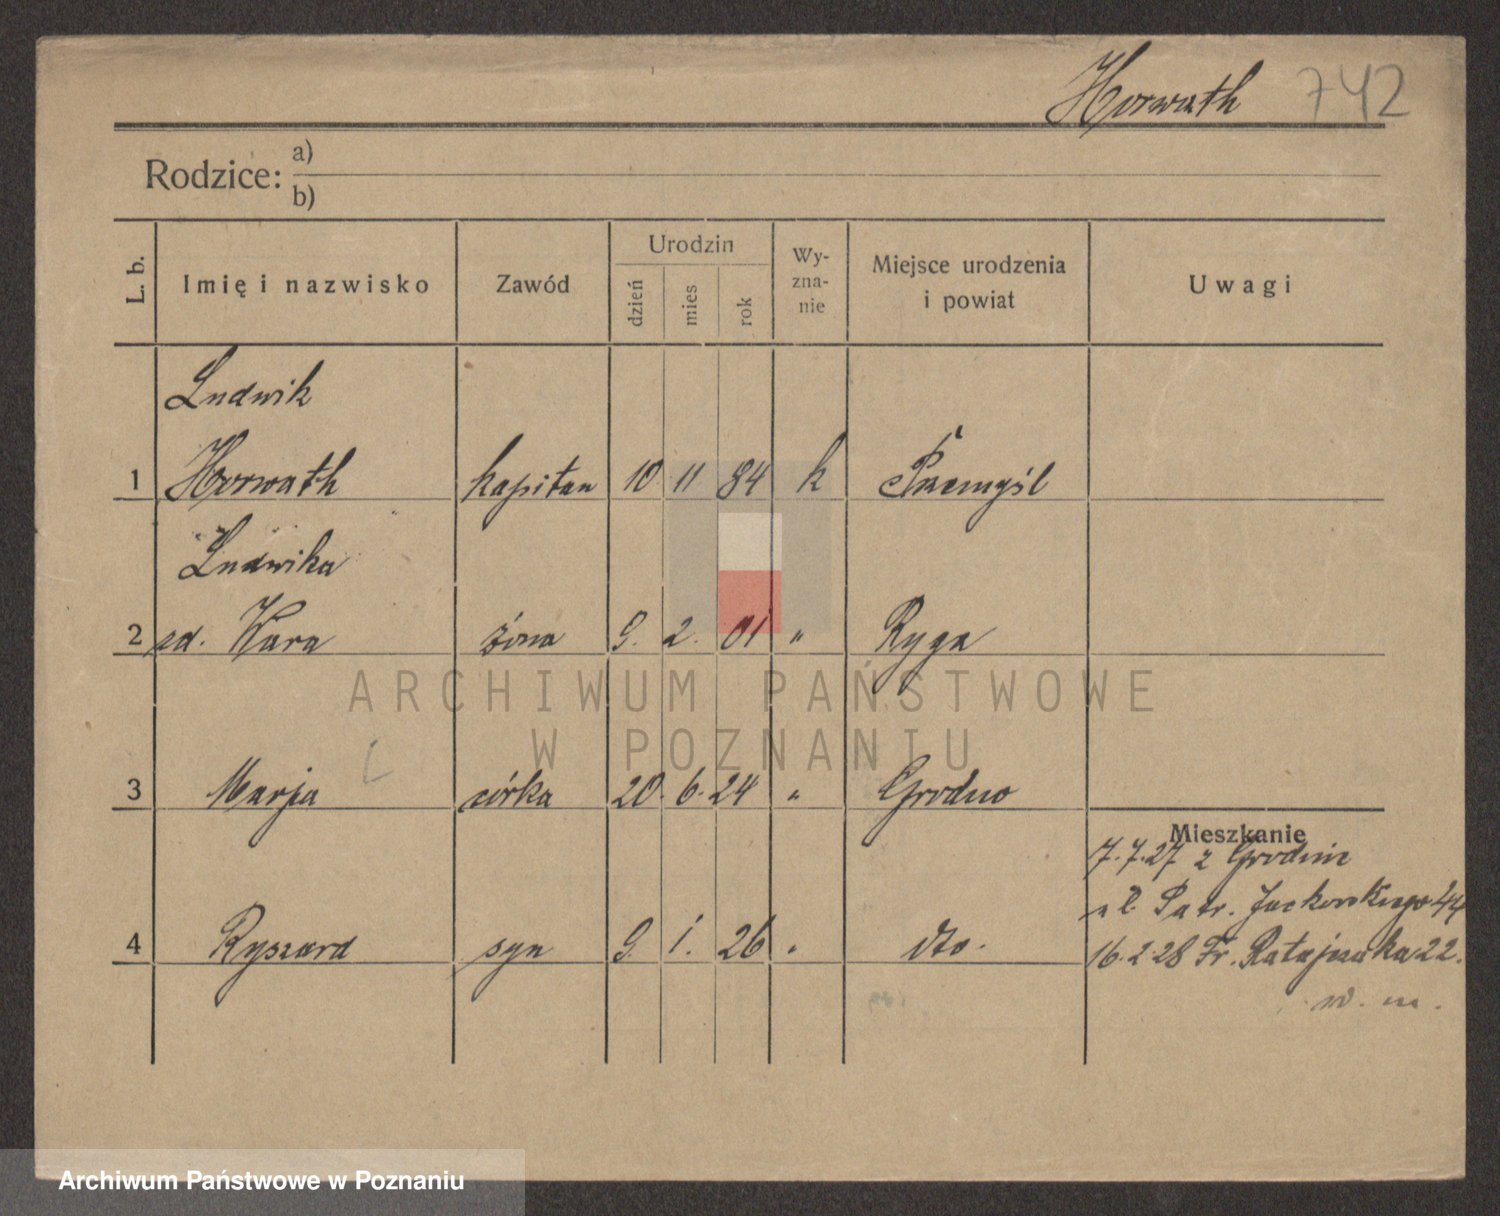 Horwath 742
Rodzice: a)
b)
L. b. Imię i nazwisko Zawód Urodzin dzień mies rok Wy-zna-nie Miejsce urodzenia i powiat Uwagi
Ludwik
1 Horwath kapitan 10 11 84 k Przemyśl
Ludwika
2 zd. Wara żona 9. 2. 01 " Ryga
3 Marja córka 20. 6. 24 " Grodno
Mieszkanie
7.7.27 z Grodna
ul. Patr. Jackowskiego 44
4 Ryszard syn 9. 1. 26 " dto.
16.2.28 Fr. Ratajczaka 22.
w. m.
ARCHIWUM PAŃSTWOWE
W POZNANIU
Archiwum Państwowe w Poznaniu